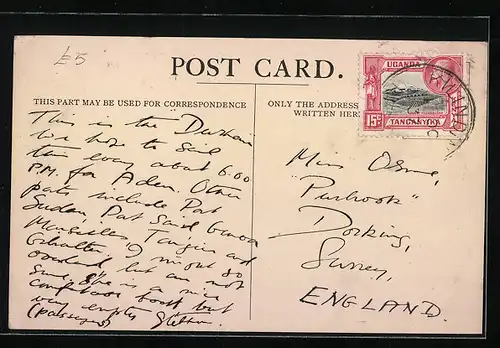 £5
POST CARD.
THIS PART MAY BE USED FOR CORRESPONDENCE
ONLY THE ADDRESS
WRITTEN HER
UGANDA
15c
TANGANYIKA
This is the "Durham
We hope to sail
this evng about 6.00
P.M. for Aden. Other
ports include Port
Sudan, Port Said Genoa
Marseilles, Tangier and
Gibraltar. I go
overland but am not
sure. She is a nice
comfortable boat but
very empty
(passengers)
Miss
"Purbrook"
Dorking,
Surrey,
ENGLAND.